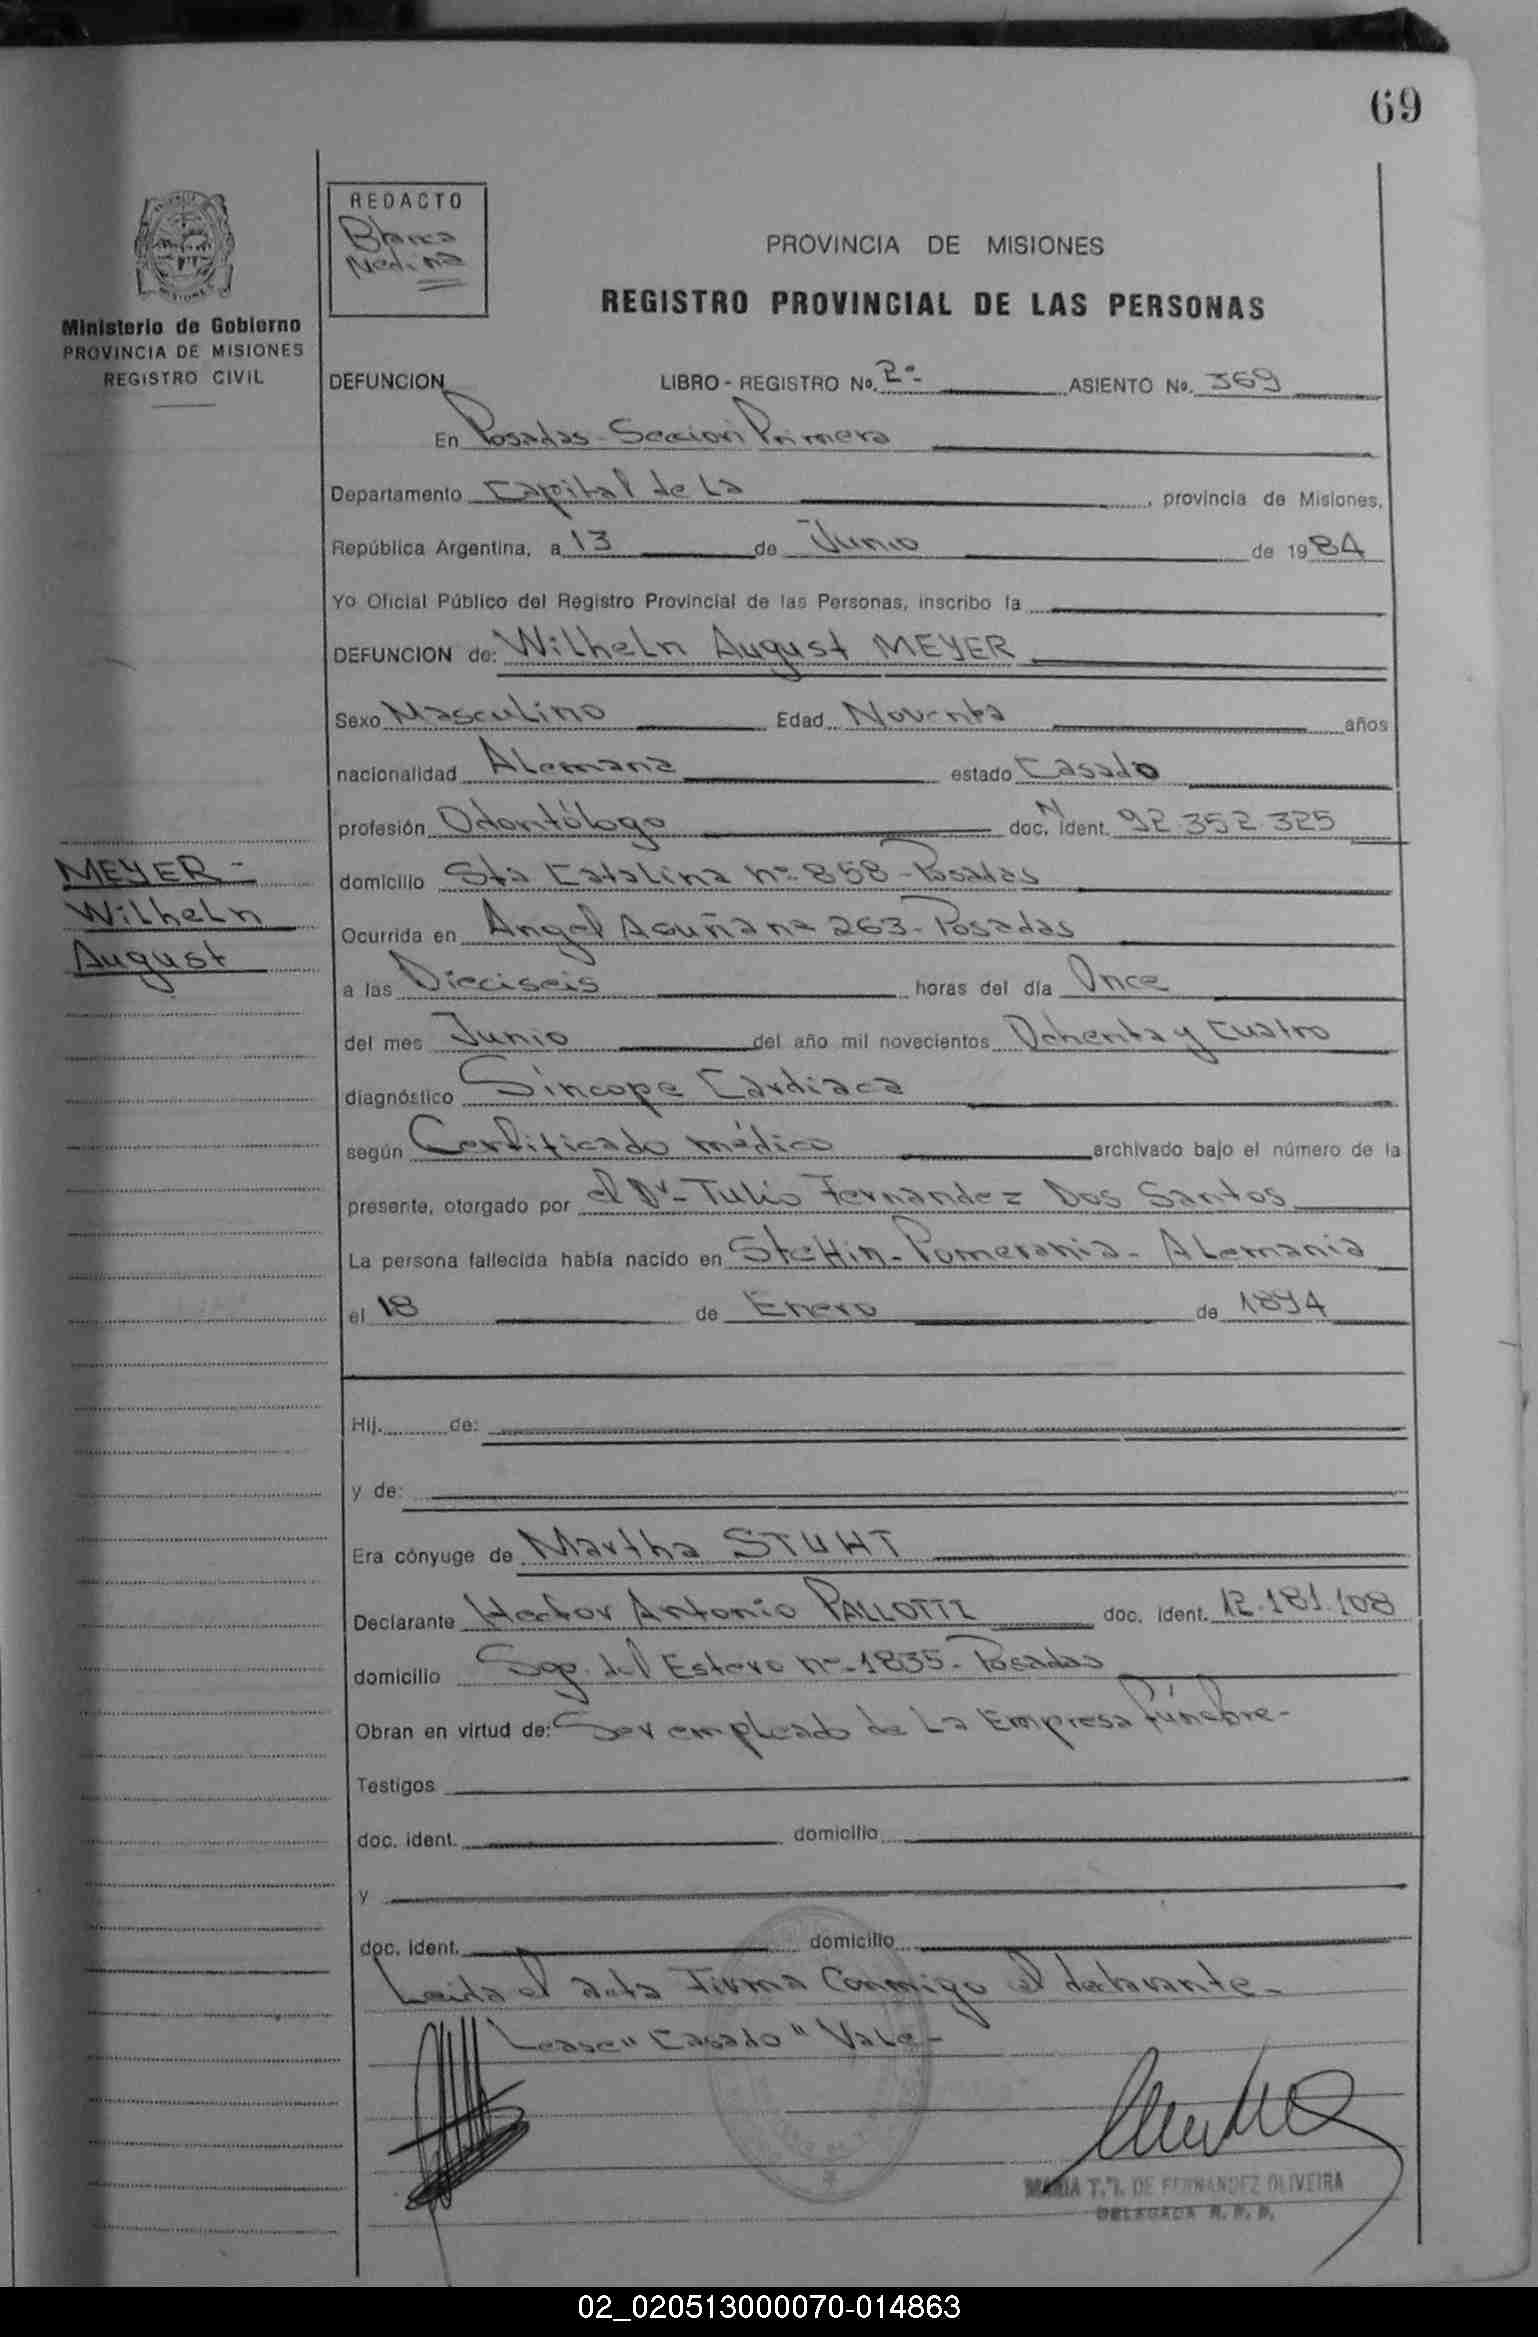 69
REDACTO
Blanca
Medina
PROVINCIA DE MISIONES
REGISTRO PROVINCIAL DE LAS PERSONAS
Ministerio de Gobierno
PROVINCIA DE MISIONES
REGISTRO CIVIL
DEFUNCION LIBRO - REGISTRO No. 2º ASIENTO No. 369
En Posadas - Seccion Primera
Departamento Capital de La , provincia de Misiones,
República Argentina, a 13 de Junio de 1984
Yo Oficial Público del Registro Provincial de las Personas, inscribo la
DEFUNCION de: Wilheln August MEYER
Sexo Masculino Edad Noventa años
nacionalidad Alemana estado Casado
profesión Odontólogo doc. N ident. 92.352.325
MEYER -
Wilheln
August
domicilio Sta Catalina nº 858 - Posadas
Ocurrida en Angel Acuña nº 263 - Posadas
a las Dieciseis horas del día Once
del mes Junio del año mil novecientos Ochenta y Cuatro
diagnóstico Síncope Cardiaca
según Certificado médico archivado bajo el número de la
presente, otorgado por el Dr. Tulio Fernandez Dos Santos
La persona fallecida había nacido en Stettin - Pomerania - Alemania
el 18 de Enero de 1894
Hij. de:
y de:
Era cónyuge de Martha STUHT
Declarante Hector Antonio PALLOTTI doc. ident. 12.181.108
domicilio Sgo. del Estero nº 1835 - Posadas
Obran en virtud de: Ser empleado de La Empresa fúnebre -
Testigos
doc. ident. domicilio
y
doc. ident. domicilio
Leida el acta Firma Conmigo el declarante -
Lease "Casado" Vale -
MARIA T. I. DE FERNANDEZ OLIVEIRA
DELEGADA R. P. P.
02_020513000070-014863